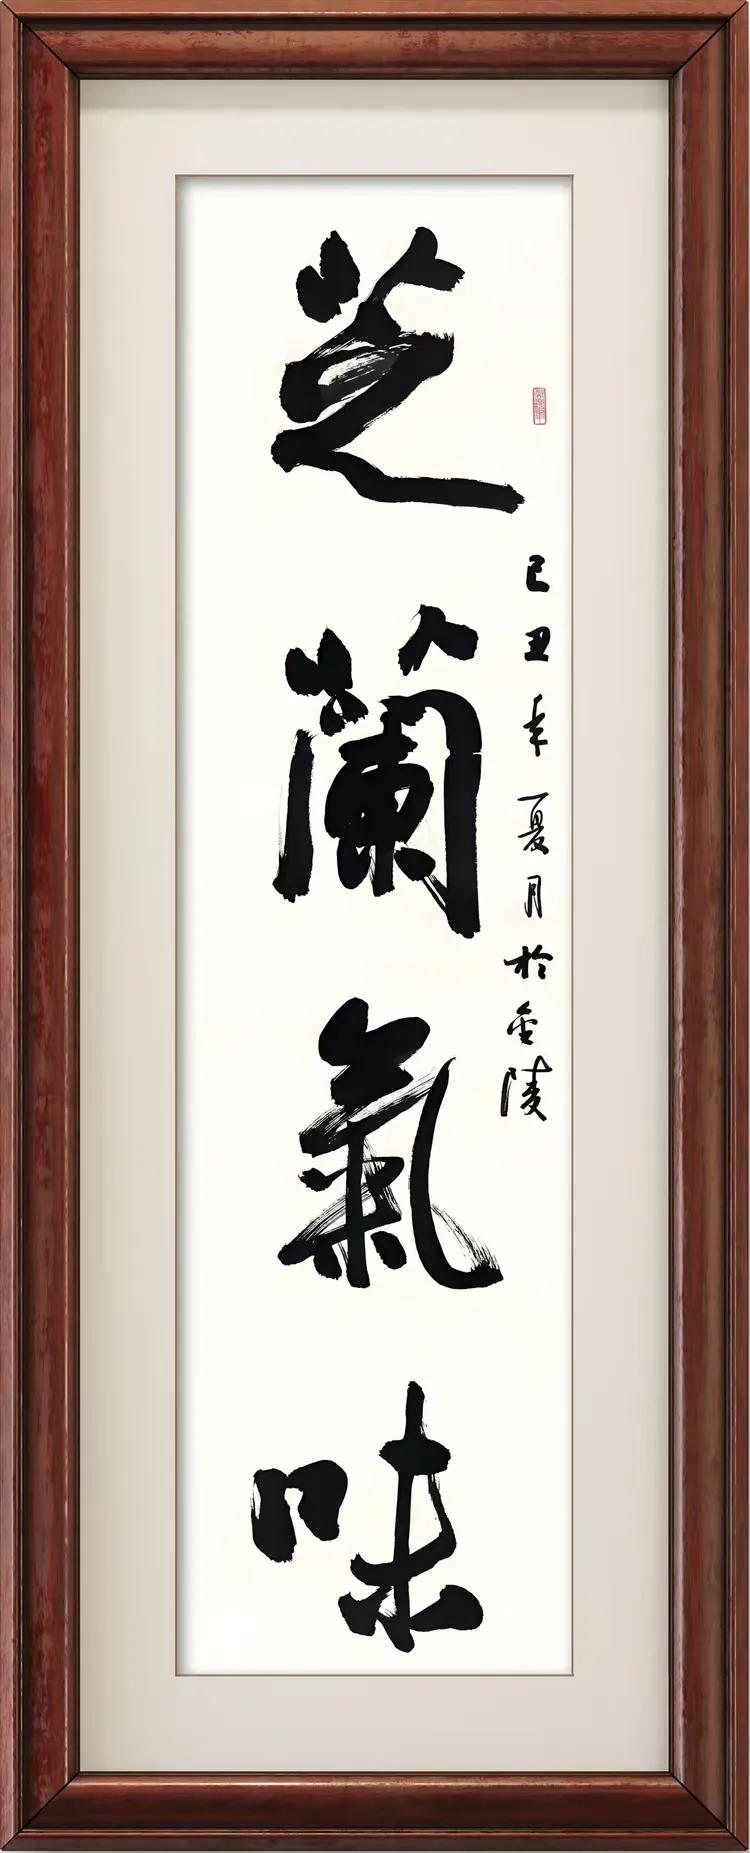 芝蘭氣味
己丑年夏月於金陵